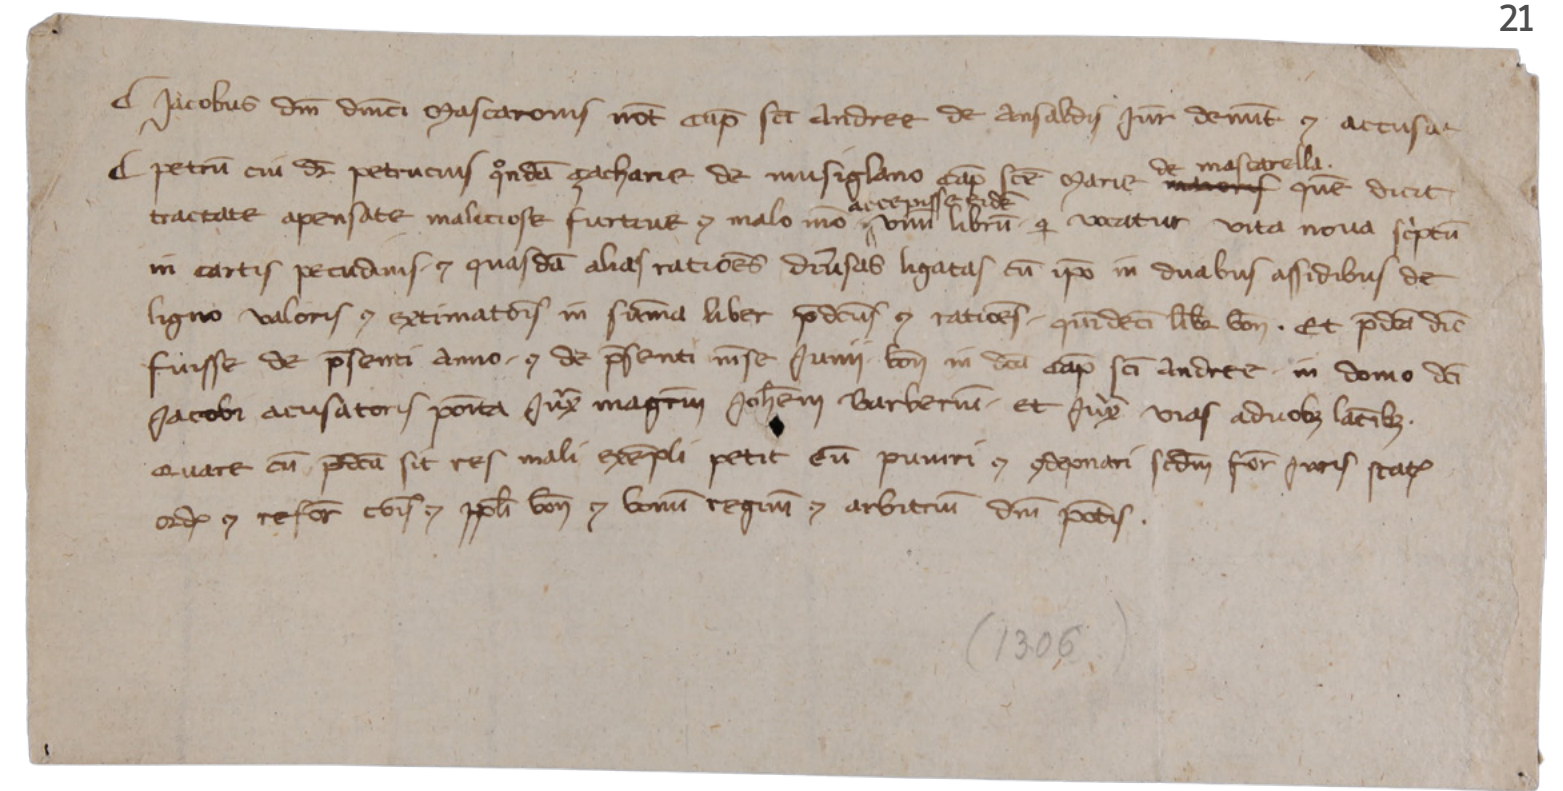 21
Jacobus dnī dnīci Mascaronis not̄ Cap̄ scī Andree de Ansaldis Jur̄ denūt ⁊ accusat
petrū cui dr̄ petrucius qondā Zacharie de musiglano Cap̄ scē Marie de mascarella. quē dicit
tractate apensate maliciose furtiue ⁊ malo mō accepisse eidē vnū librū q vocatur vita noua scptū
in cartis pecudinis ⁊ quasdā alias ratiōes diūsas ligatas cū ip̄o in duabus assidibus de
ligno valoris ⁊ extimatōīs in sūma liber p̄dcūs ⁊ ratiōes quīdeci libr bon̄. Et p̄dcā dic̄
fuisse de p̄senti Anno ⁊ de p̄senti mēse Junij bon̄ in dcā Cap̄ scī Andree in domo dcī
Jacobi acusatoris poīta Jux magrm̄ Joh̄em Barberiū Et Jux vias aduobȝ latibȝ.
Quare cū p̄dcā sit res mali exēpli petit eū puniri ⁊ ꝯdepnari scdm̄ for̄ Juris stat
ord ⁊ refor̄ cōīs ⁊ ppl̄i bon̄ ⁊ bonū regim̄ ⁊ arbitriū dnī p̄otīs.
(1306)